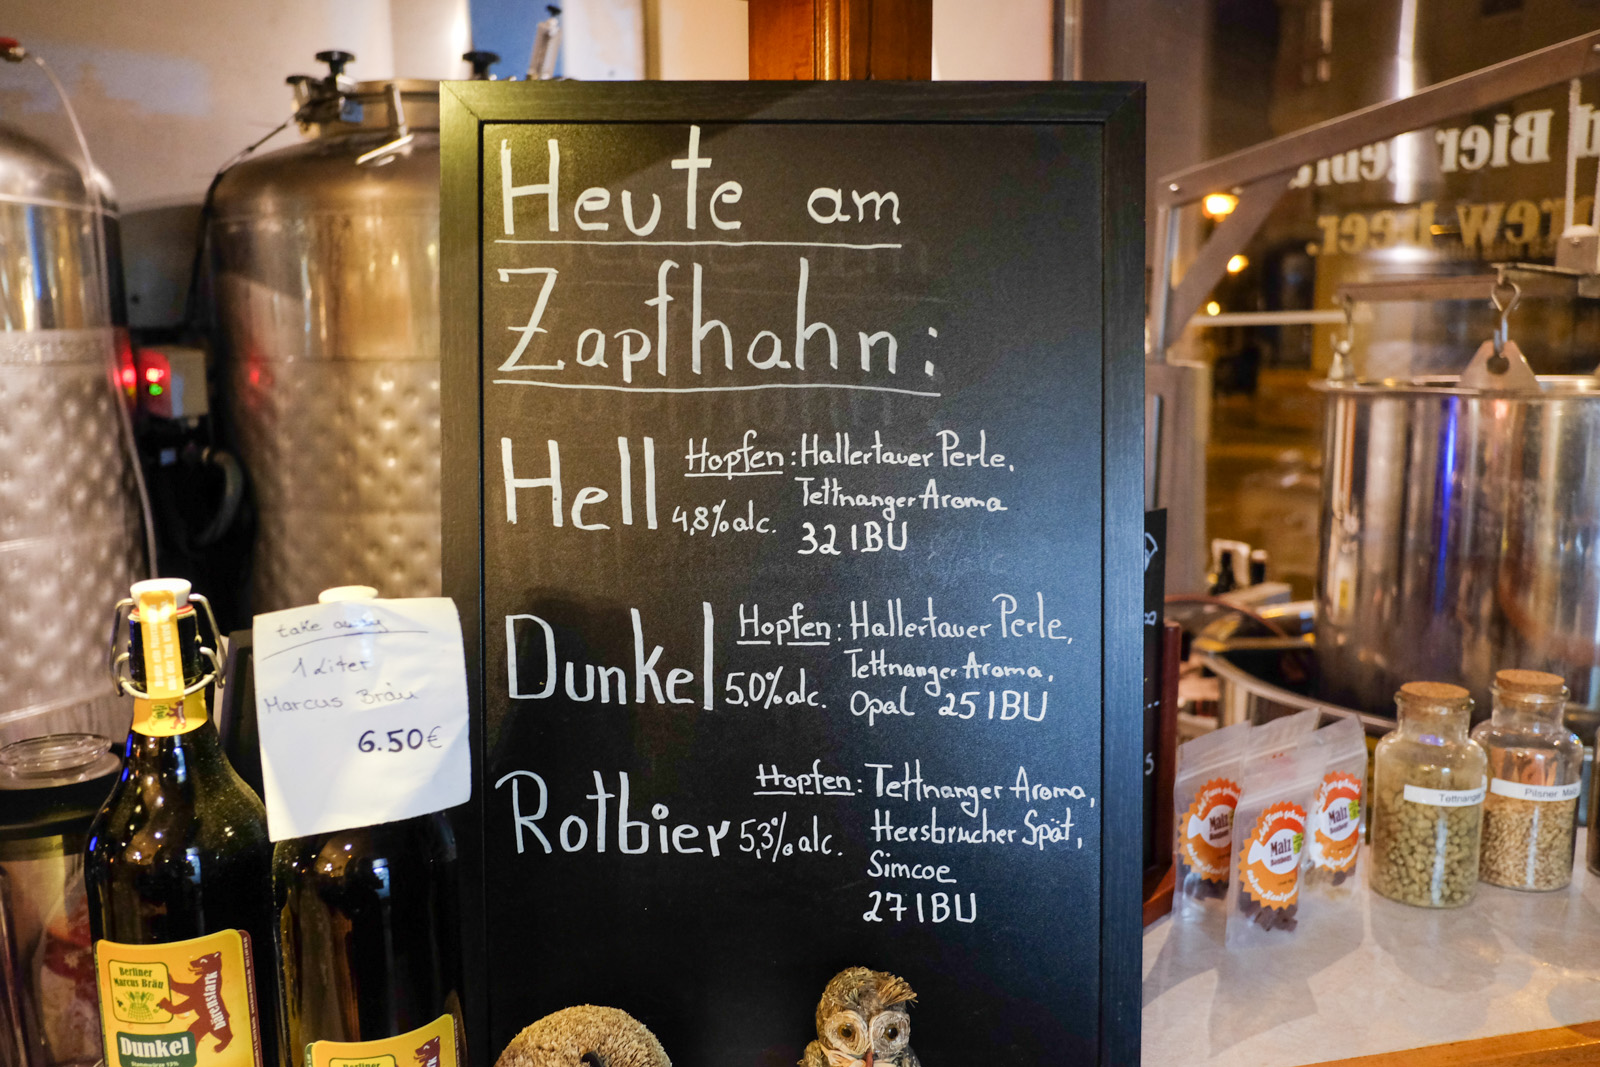 Heute am
Zapfhahn:
Hell
Hopfen: Hallertauer Perle,
Tettnanger Aroma
4,8% alc.
32 IBU
Dunkel
Hopfen: Hallertauer Perle,
Tettnanger Aroma,
5,0% alc.
Opal 25 IBU
Rotbier
Hopfen: Tettnanger Aroma,
5,3% alc.
Hersbrucher Spät,
Simcoe
27 IBU
take away
1 Liter
Marcus Bräu
6.50€
Berliner
Marcus Bräu
bärenstark
Dunkel
Berliner
Malz
Bonbons
Malz
Bonbons
Malz
Bonbons
Tettnang
Pilsner Malz
Bier
beer.